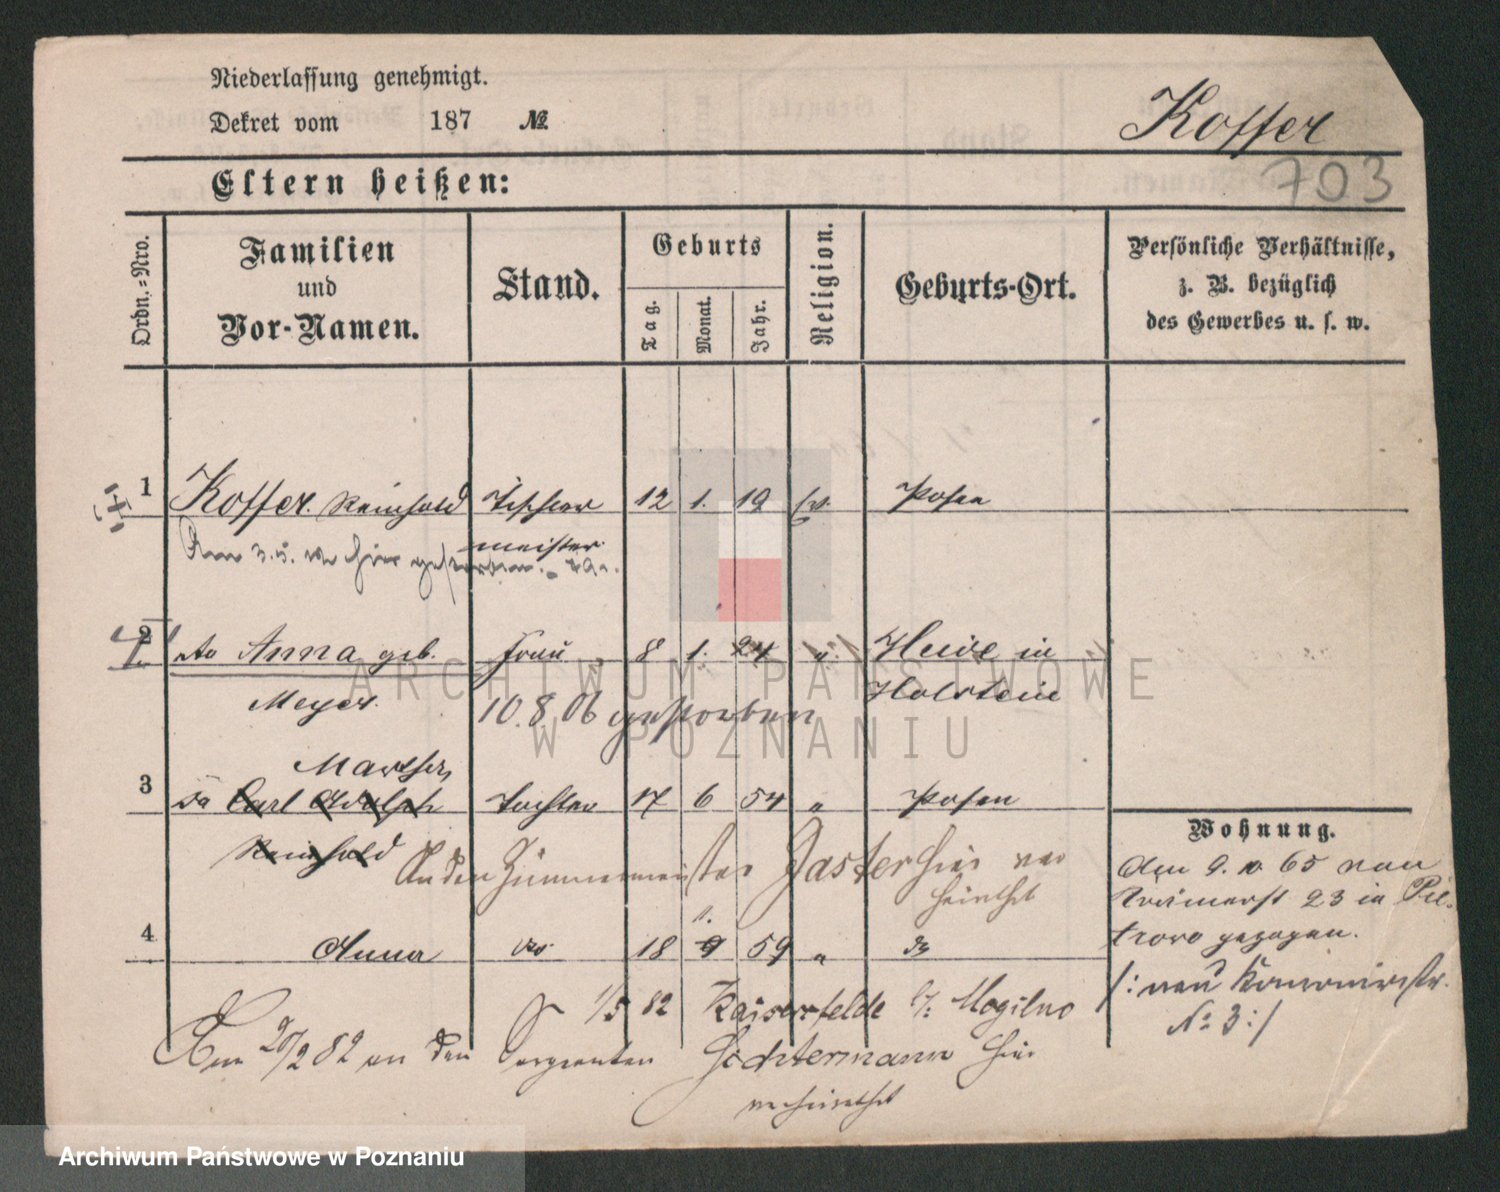 Niederlassung genehmigt.
Dekret vom 187 №
Koffer
703
Eltern heißen:
Ordn.-Nro.
Familien und Vor-Namen.
Stand.
Geburts
Tag.
Monat.
Jahr.
Religion.
Geburts-Ort.
Persönliche Verhältnisse,
z. B. bezüglich
des Gewerbes u. s. w.
1 Koffer Reinhold Tischler 12 1. 19 Ev. Posen
meister
Am 3.5. hier gestorben.
2 Anna geb. Frau 8 1. 24 " Heide in
Meyer Holstein
10.8.06 gestorben
Martha
3 Carl Adolph Tochter 17 6 54 " Posen
Reinhold
An den Zimmermeister Jaster hier ver
heirathet
1.
4 Anna do 18 9 59 " do
1/5 82 Kaisersfelde b/: Mogilno
Am 20/2 82 an den Sergeanten Lichtermann hier
verheirathet
Wohnung.
Am 9. 65 von
23 in Pie-
trowo gezogen.
/: neue
№ 3 :/
ARCHIWUM PAŃSTWOWE
W POZNANIU
Archiwum Państwowe w Poznaniu